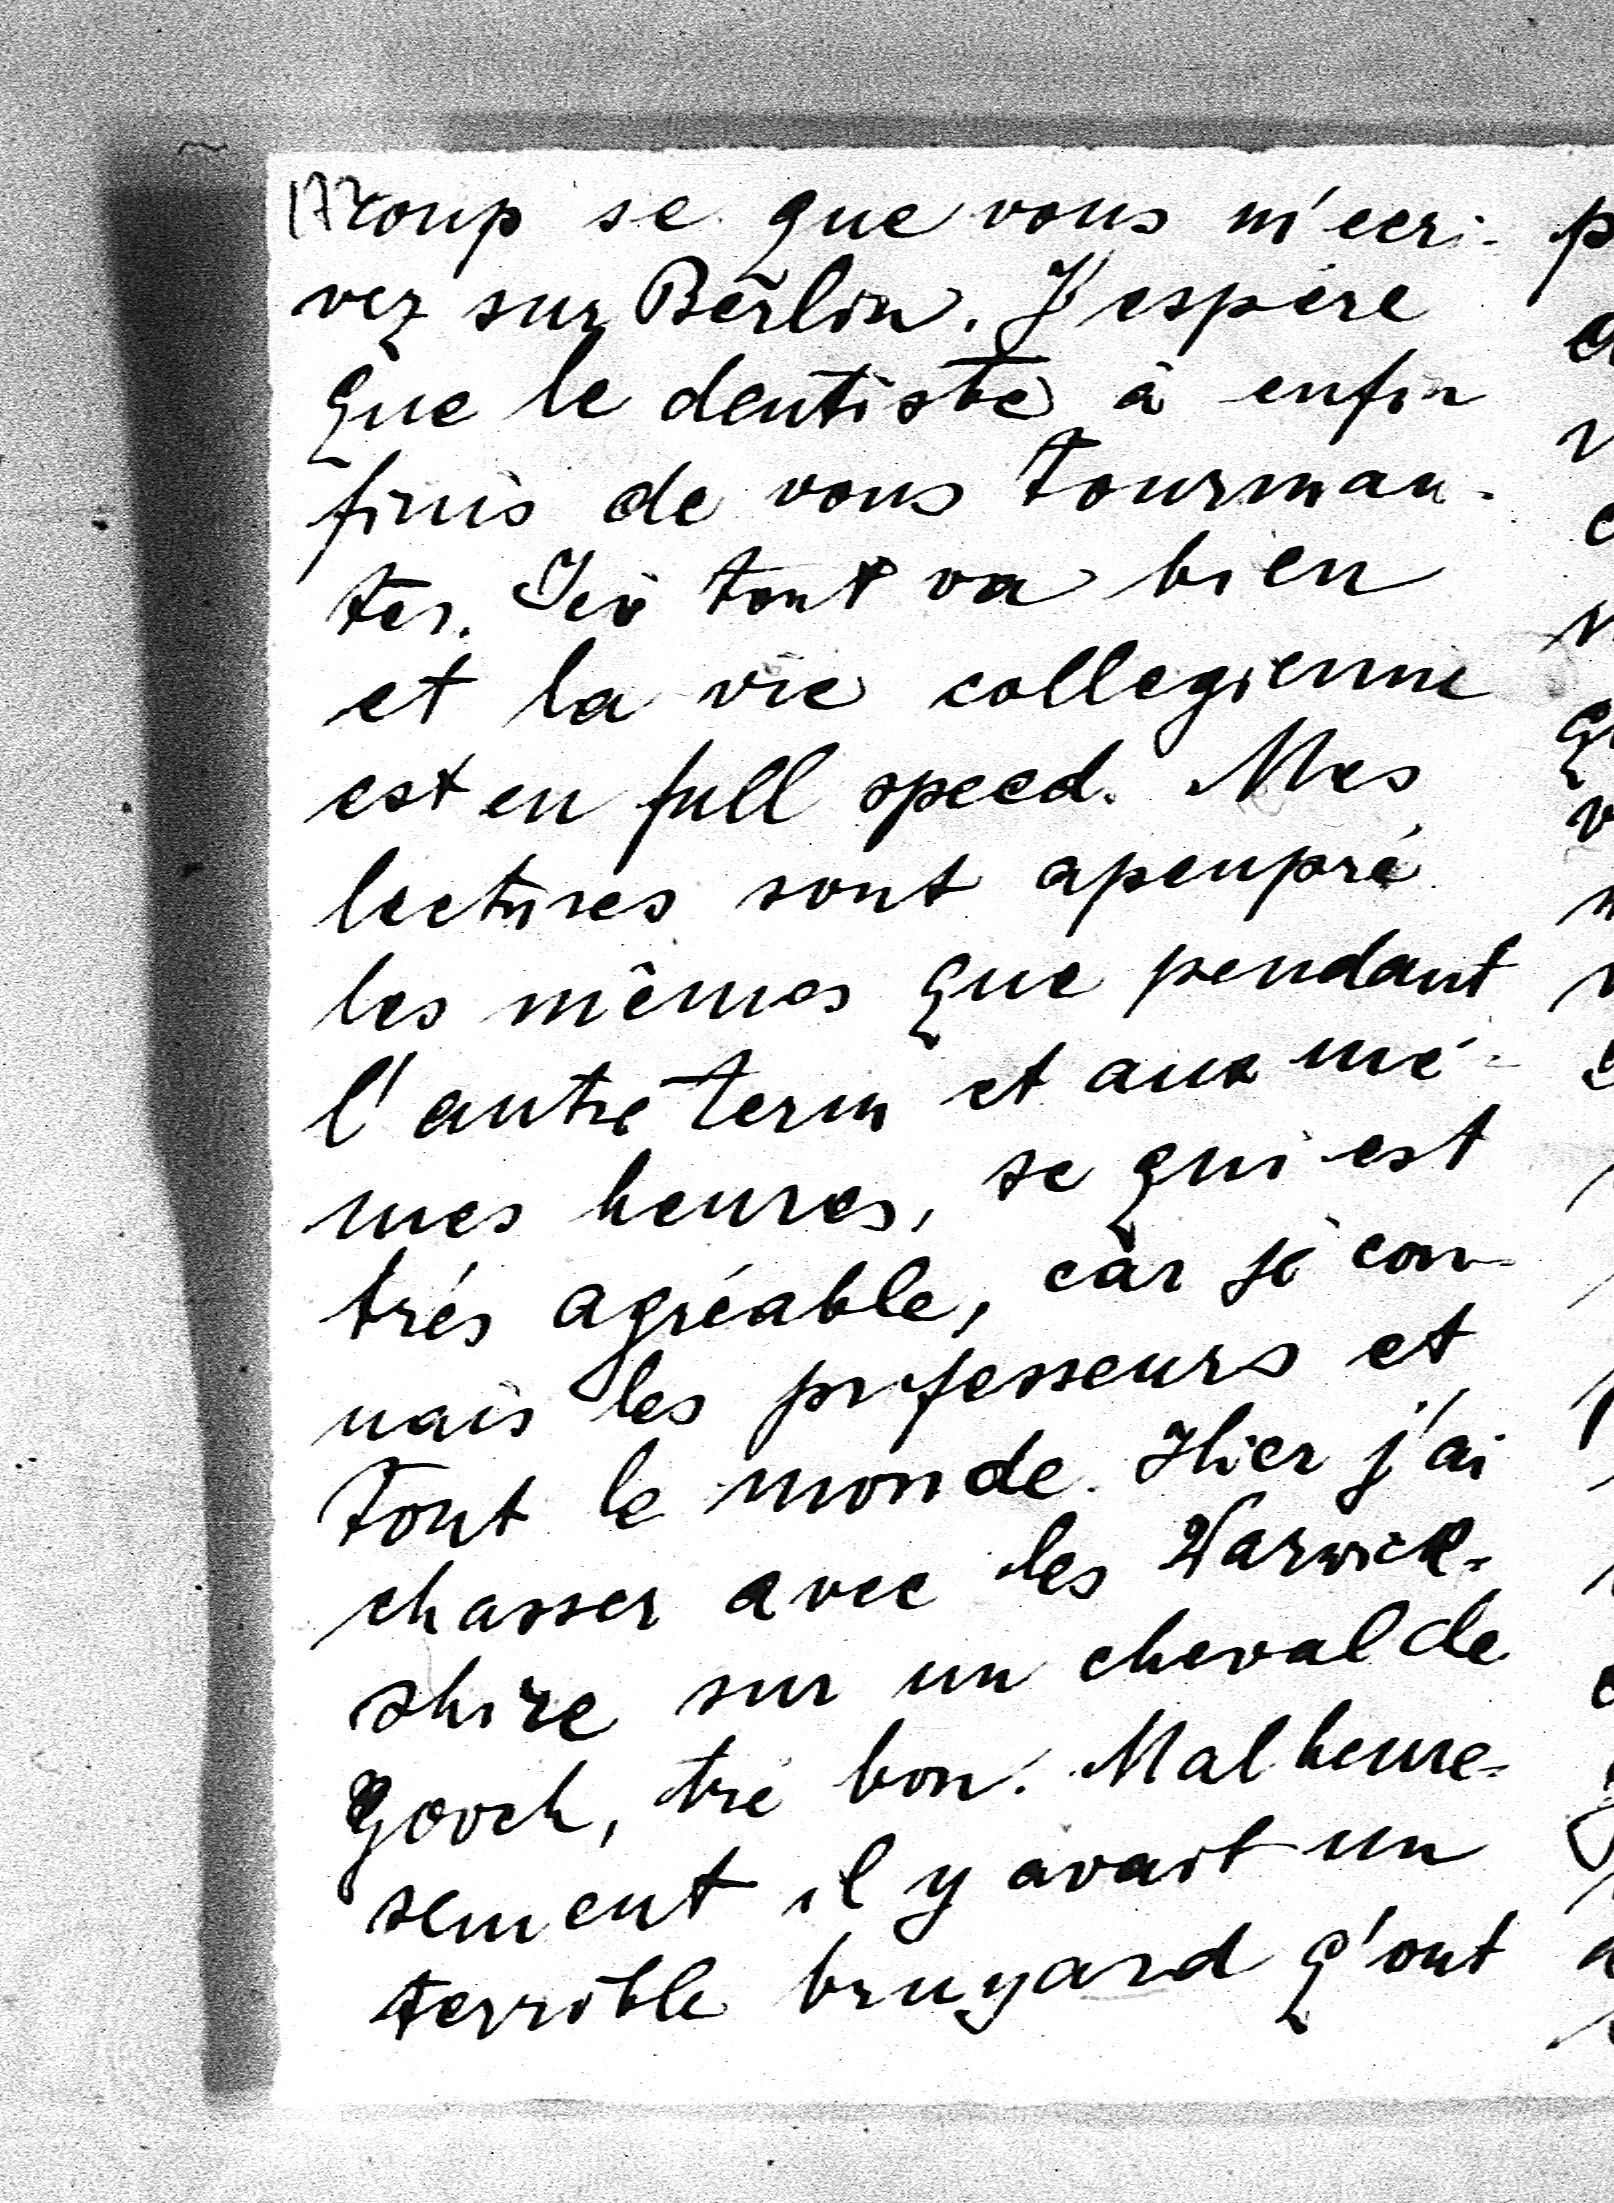 172
coup se que vous m'ecri-
vez sur Berlin. J'espère
que le dentiste à enfin
finis de vous tourman-
ter. Ici tout va bien
et la vie collegienne
est en full speed. Mes
lectures sont apeupré
les mêmes que pendant
l'autre term et aux mé-
mes heures, se qui est
trés agréable, car je con-
nais les professeurs et
tout le monde. Hier j'ai
chasser avec les Warwick-
shire sur un cheval de
Gooch, tré bon. Malheure-
sement il y avait un
terrible bruyard q'ont